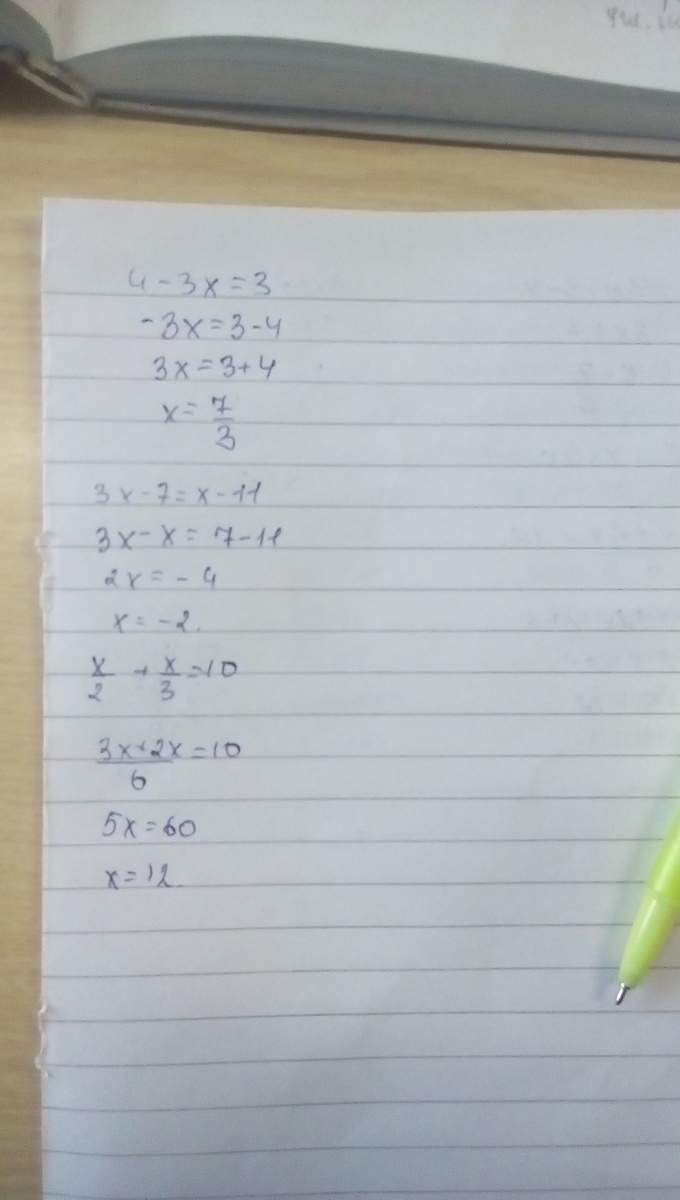 4-3x=3
-3x=3-4
3x=3+4
x=7/3
3x-7=x-11
3x-x=7-11
2x=-4
x=-2.
x/2+x/3=10
(3x+2x)/6=10
5x=60
x=12.